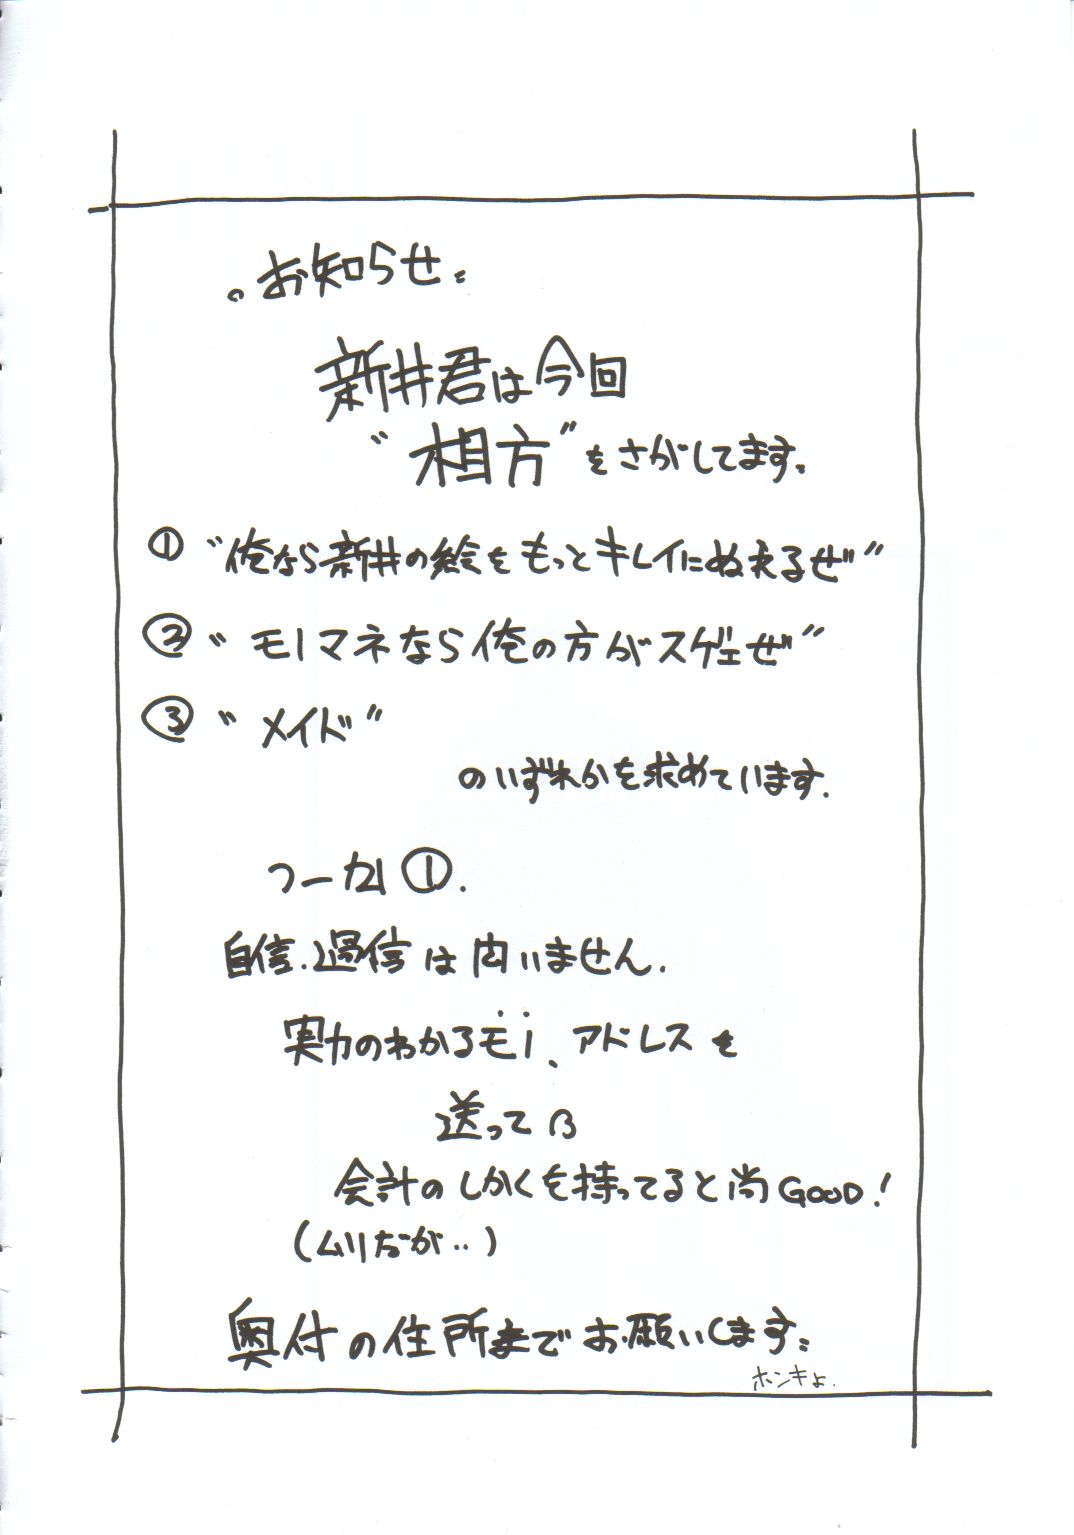 。お知らせ。
新井君は今回
〝相方〟をさがしてます。
① 〝俺なら新井の絵をもっとキレイにぬえるぜ〟
② 〝モノマネなら俺の方がスゲェぜ〟
③ 〝メイド〟
のいずれかを求めています.
つーか①.
自信.過信は問いません.
実力のわかるモノ、アドレスを
送ってね
会計のしかくを持ってると尚GOOD!
(ムリだが‥)
奥付の住所までお願いします。
ホンキよ.